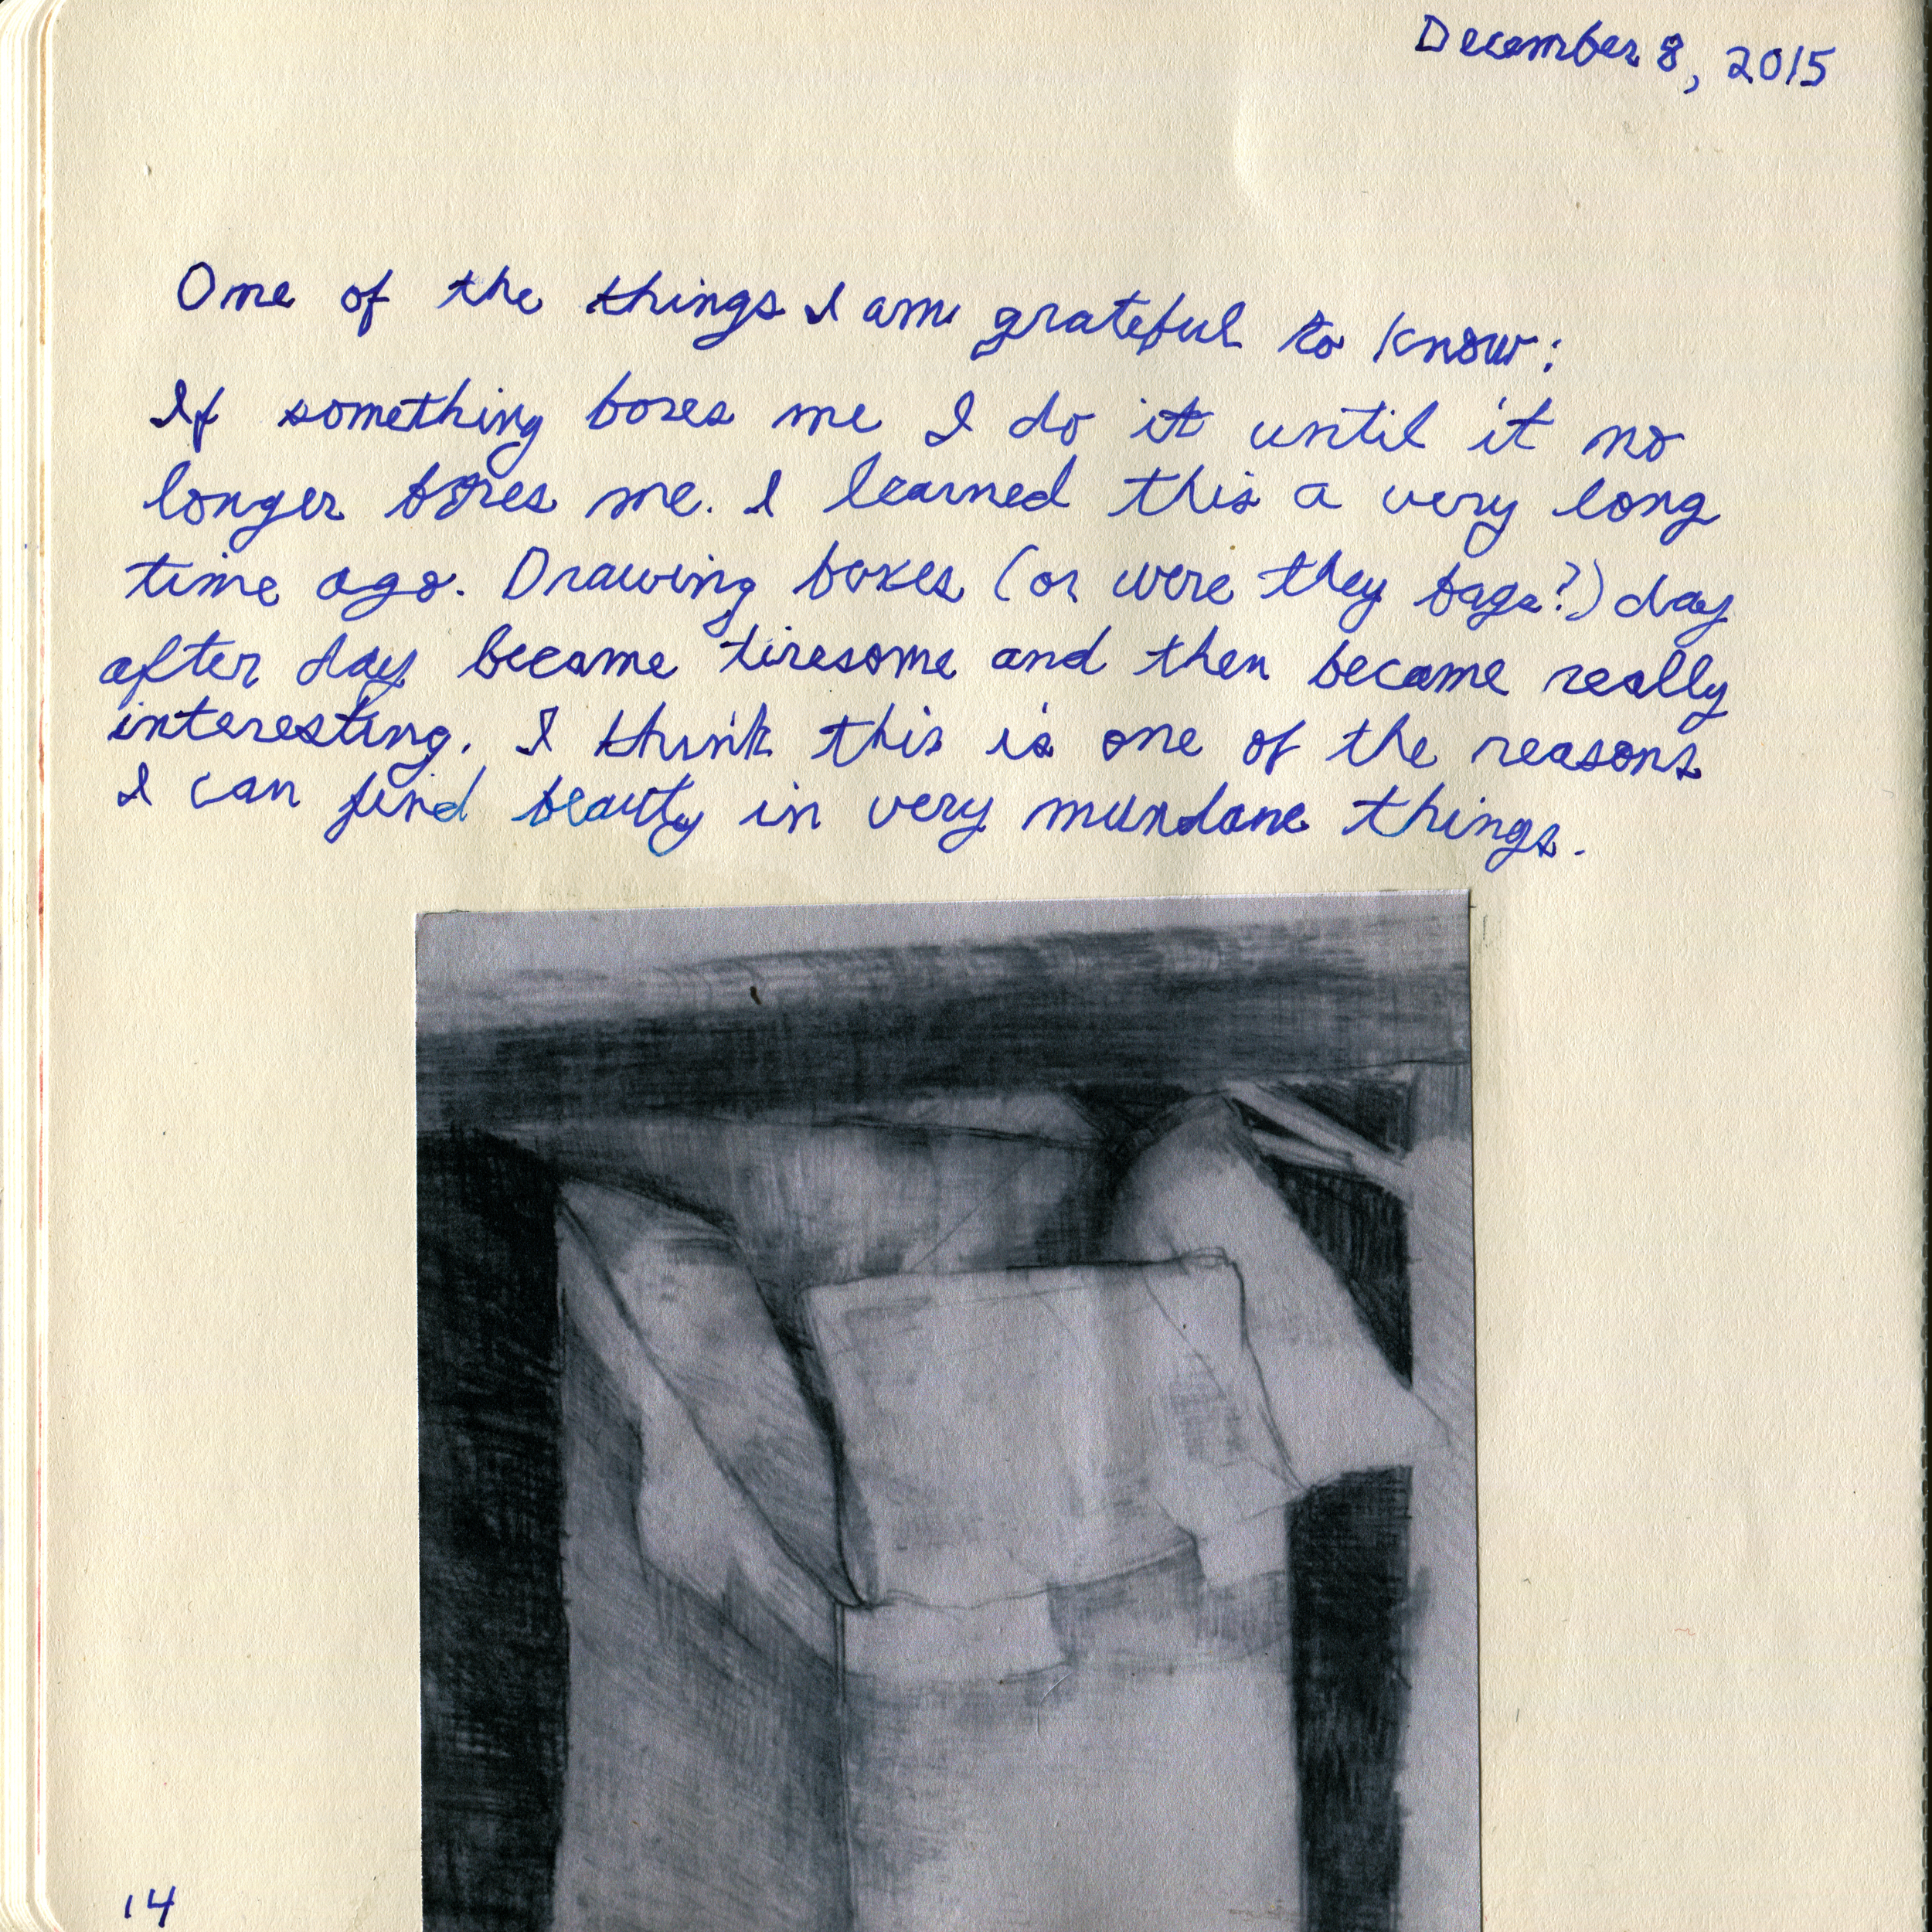 December 8, 2015
One of the things I am grateful to know:
If something bores me I do it until it no
longer bores me. I learned this a very long
time ago. Drawing boxes (or were they bags?) day
after day became tiresome and then became really
interesting. I think this is one of the reasons
I can find beauty in very mundane things.
14